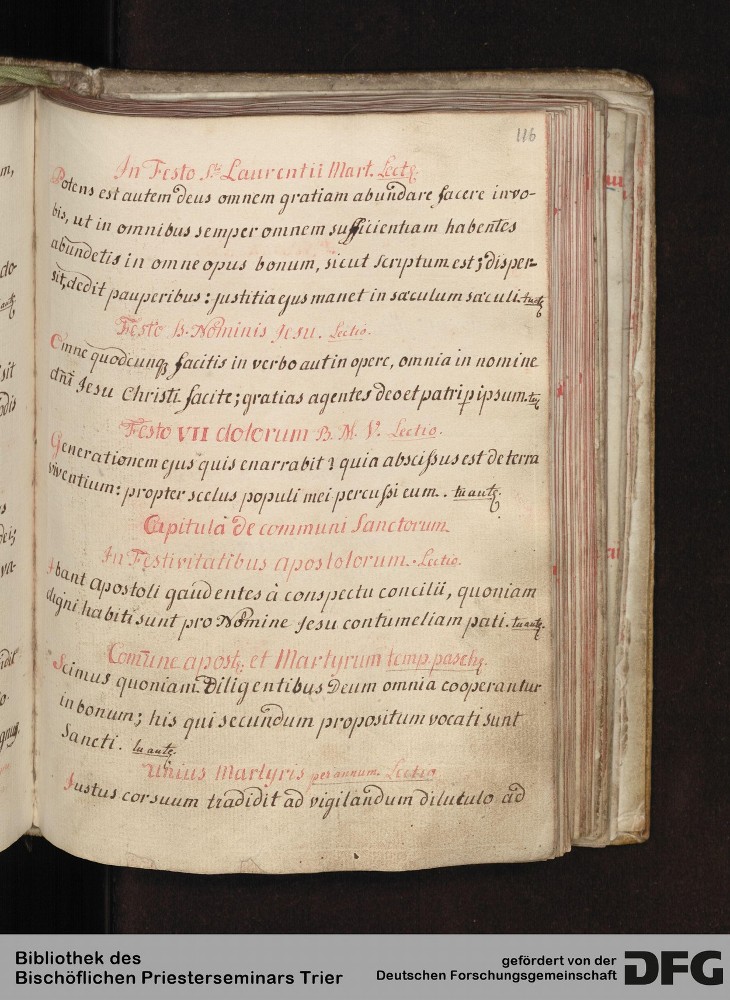 116
In Festo S. Laurentii Mart. Lectꝫ.
Potens est autem Deus omnem gratiam abundare facere in vo-
bis, ut in omnibus semper omnem sufficientiam habentes
abundetis in omne opus bonum, sicut scriptum est; disper-
sit, dedit pauperibus: justitia ejus manet in sæculum sæculi. tu autꝫ
Festo B. Nominis Jesu. Lectio.
Omne quodcunqꝫ facitis in verbo aut in opere, omnia in nomine
dñi Jesu Christi facite; gratias agentes deo et patri p ipsum. tu
Festo VII dolorum B. M. V. Lectio.
Generationem ejus quis enarrabit? quia abscissus est de terra
viventium: propter scelus populi mei percussi eum. tu autꝫ.
Capitula de communi Sanctorum
In Festivitatibus apostolorum. Lectio.
Ibant apostoli gaudentes à conspectu concilii, quoniam
digni habiti sunt pro Nomine Jesu contumeliam pati. tu autꝫ.
Com̃une apostꝫ. et Martyrum temp. paschꝫ.
Scimus quoniam Diligentibus Deum omnia cooperantur
in bonum; his qui secundum propositum vocati sunt
Sancti. tu autꝫ.
Unius Martyris per annum. Lectio
Justus cor suum tradidit ad vigilandum diluculo ad
Bibliothek des
Bischöflichen Priesterseminars Trier
gefördert von der
Deutschen Forschungsgemeinschaft
DFG